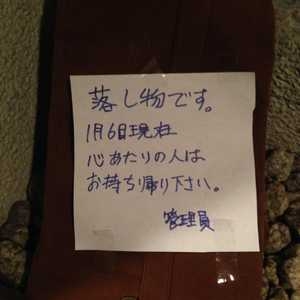 落し物です。
1月6日現在
心あたりの人は
お持ち帰り下さい。
管理員